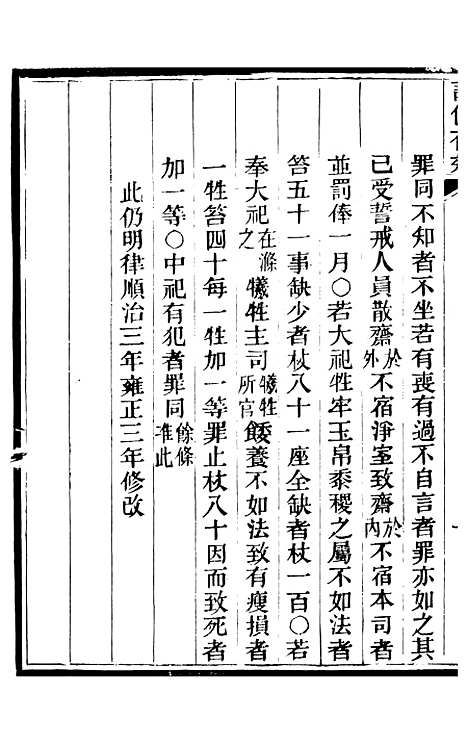 罪同不知者不坐若有喪有過不自言者罪亦如之其
已受誓戒人員散齋於外不宿淨室致齋於內不宿本司者
並罰俸一月○若大祀牲牢玉帛黍稷之屬不如法者
笞五十一事缺少者杖八十一座全缺者杖一百○若
奉大祀在滌之犧牲主司犧牲所官餧養不如法致有瘦損者
一牲笞四十每一牲加一等罪止杖八十因而致死者
加一等○中祀有犯者罪同餘條准此
此仍明律順治三年雍正三年修改